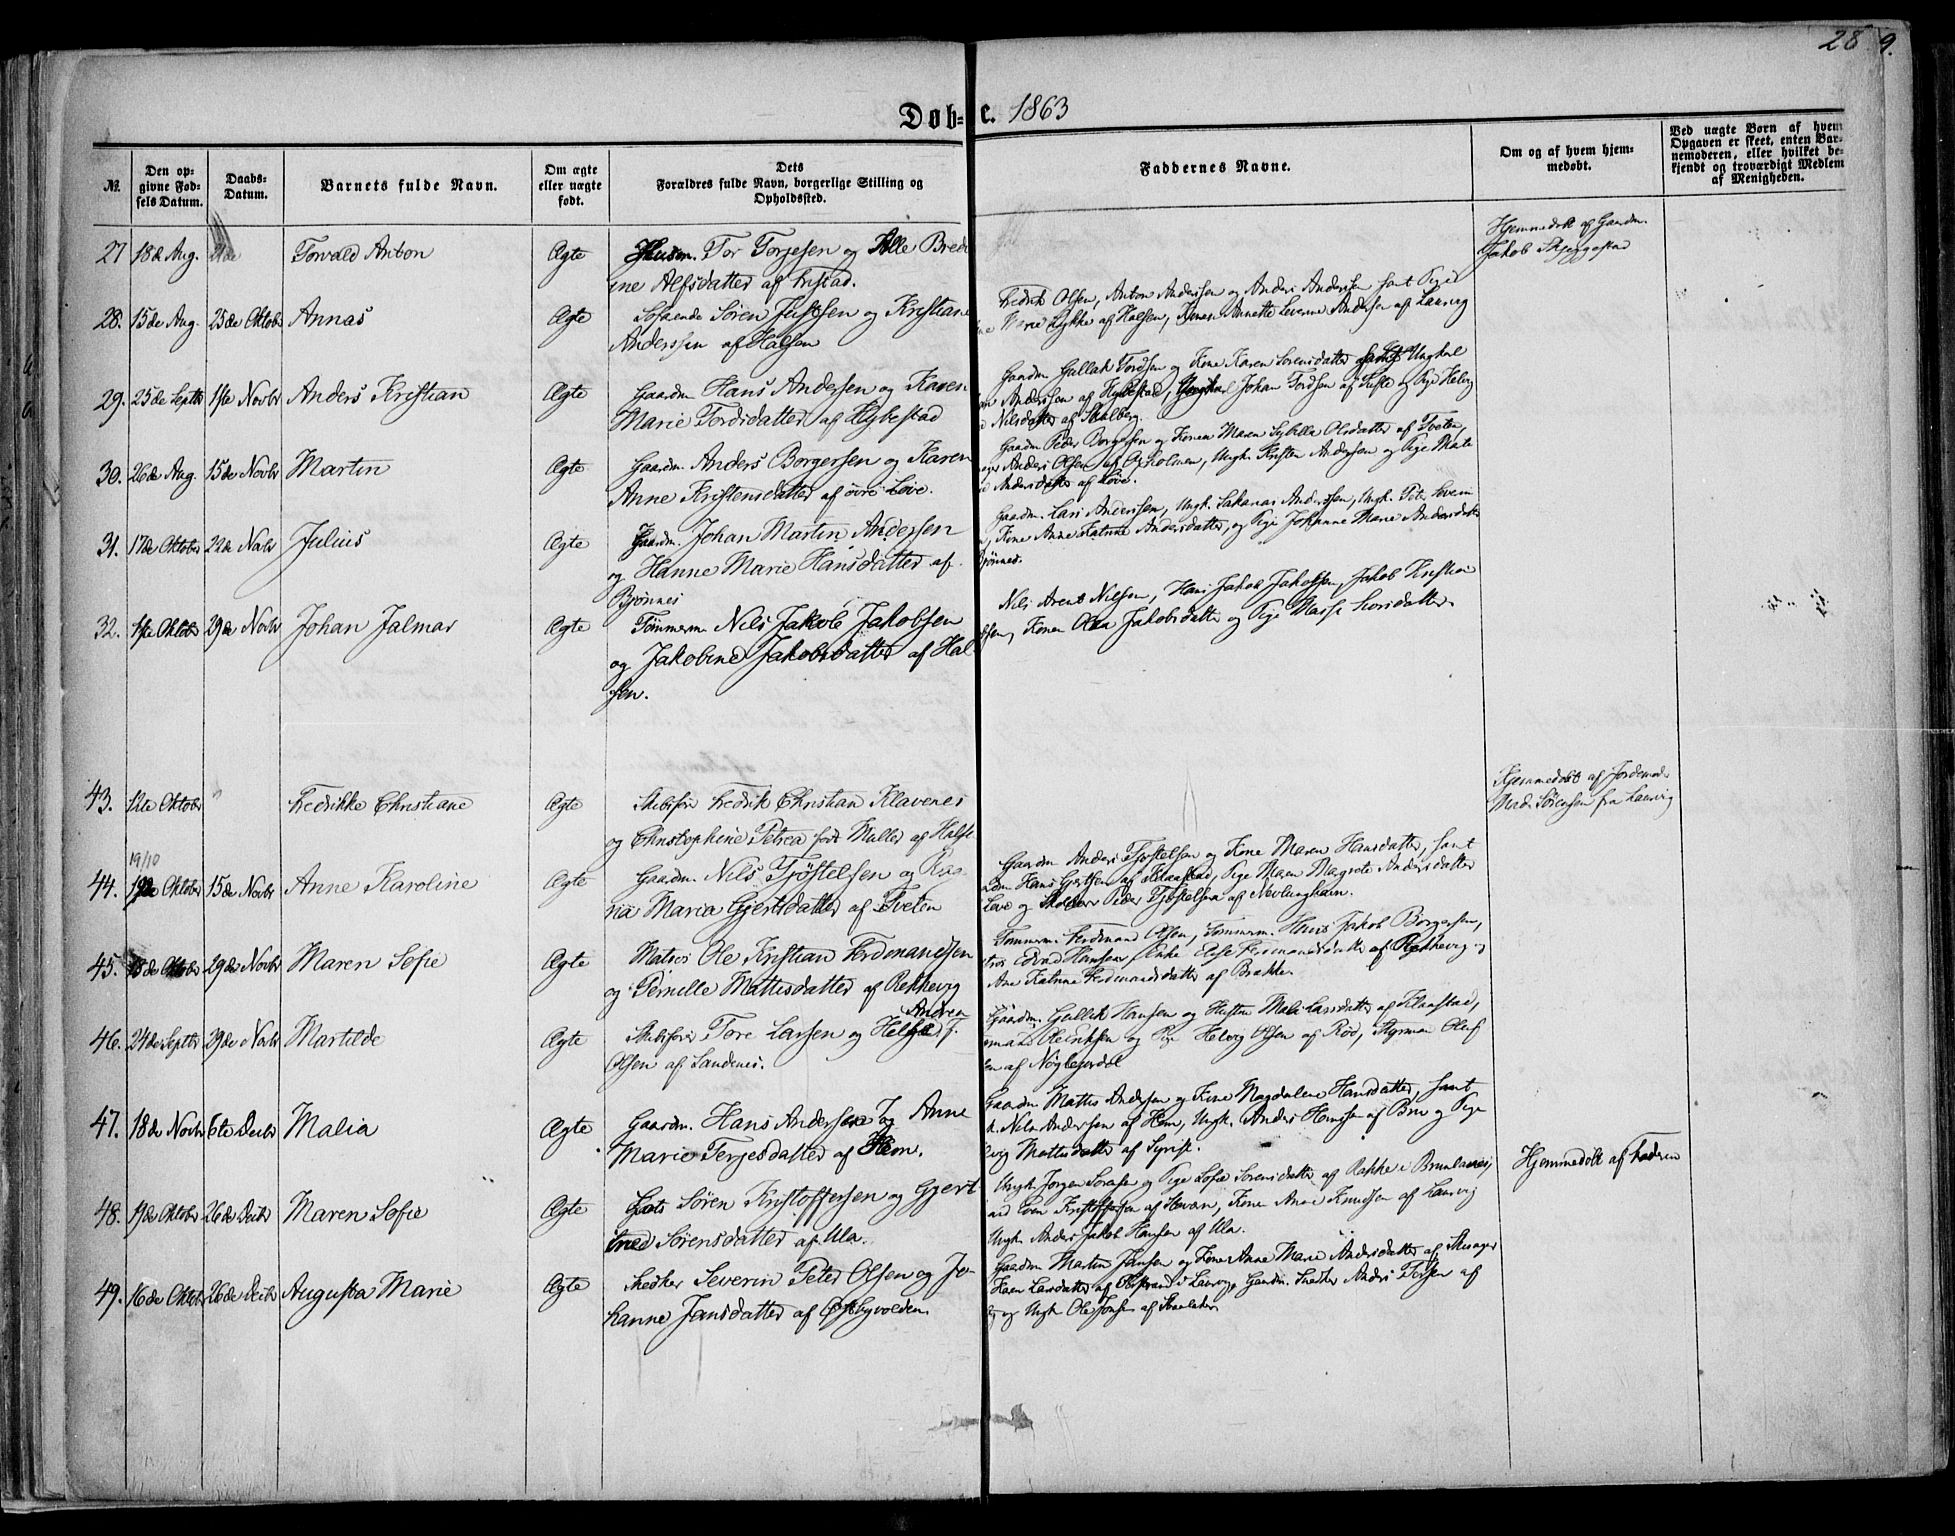 28 9.
Døb- e. 1863
№.
Den op-
givne Fød-
sels Datum.
Daabs-
Datum.
Barnets fulde Navn.
Om ægte
eller uægte
født.
Dets
Forældres fulde Navn, borgerlige Stilling og
Opholdssted.
Faddernes Navne.
Om og af hvem hjem-
medøbt.
Ved uægte Børn af hvem
Opgaven er skeet, enten Bar-
nemoderen, eller hvilket be-
kjendt og troværdigt Medlem
af Menigheden.
27 18de Aug. Torvald Anton Ægte Husm. Tor Torjesen og Alle Bred
ine Alfsdatter af
Hjemmedøbt af Gaardm.
Jakob Skjeggestad
28. 15de Aug. 25de Oktobr Annas Ægte Søfarende Søren Justsen og Kristiane
Anderssen af Halsen
Fredrik Olsen, Anton Anderssen og Anders Anderssen samt Pige
Marie Lykke af Halsen, Annette Leverine Andersen af Laurvig
29. 25de Septbr 1ste Novbr Anders Kristian Ægte Gaardm. Hans Andersen og Karen
Marie Tordsdatter af Hybestad
Gaardm Gullak Tordsen og Kone Karen Sørensdatter Ungkal
Anderssen af Hybestad, Johan Tordsen af og Pige Helvig
Nilsdatter af Skalberg
30. 26de Aug. 15de Novbr Martin Ægte Gaardm. Anders Borgersen og Karen
Anne Kristensdatter af øvre Løve.
Gaardm Peder Borgersen og Konen Maren Sybilla Olsdatter af Tveten,
Anders Olsen af Ungk. Kristen Andersen og Pige Mate
Andersdatter af Løve.
31. 17de Oktobr 22de Novbr Julius Ægte Gaardm. Johan Martin Andersen
og Hanne Marie Hansdatter af
Bjønnes
Gaardm. Lars Anderssen, Ungk. Sakarias Anderssen, Ungk. Peter Severin
Kone Anne Katrine Andersdatter, og Pige Johanne Marie Andersdatter
Bjønnes.
32. 1ste Oktobr 29de Novbr Johan Jalmar Ægte Tømmerm Nils Jakob Jakobsen
og Jakobine Jakobsdatter af Hal-
sen.
Nils Arent Nilsen, Hans Jakob Jakobsen, Jakob Kristia
Konen Olea Jakobsdatter og Pige Masse Larsdatter.
43. 12te Oktobr " Fredrikke Christiane Ægte Skibsfør Fredrik Christian Klavenes
og Christephine Petrea født Müller af Halse
Hjemmedøbt af Jordemodr
Mad. Sørensen fra Laurvig
19/10
44. 19de Oktobr 15de Novbr Anne Karoline Ægte Gaardm Nils Tjøstelsen og Rag-
na Maria Gjertsdatter af Tveten
Gaardm Anders Tjøstelsen og Kone Maren Hansdatter, samt
Hans Gjertsen af Klaastad, Pige Maren Magrete Andersdatter
Løve og Peder Tjøstelsen af Nevlunghavn.
45. Oktobr 29de Novbr Maren Sofie Ægte Matros Ole Kristian Ferdinandsen
og Pernille Mattisdatter af Rekkevig
Tømmerm. Ferdinand Olsen, Tømmerm. Hans Jakob Borgersen,
Edvard Hansen, Enke Else Ferdinandsdatter af Rekkevig og
Ane Katrine Ferdinandsdatter af Brakke.
46. 24de Septbr 29de Novbr Martilde Ægte Skibsfører Tore Larsen og Helga Andrea F.
Olsen af Sandenes.
Gaardm. Gullik Hansen og Hustru Mali Larsdatter af Klaastad,
og Pige Helvig Olsen af Rød, Styrman Oluf
af Nøglegaardal
47. 18de Novbr 6te Decbr Malia Ægte Gaardm. Hans Andersen og Anne
Marie Terjesdatter af Hem.
Gaardm Mattis Andersen og Kone Magdalene Hansdatter, samt
Nils Anderssen af Hem, Ungk. Anders Hanssen af Bru og Pige
Mattisdatter af Syrist.
48. 19de Oktobr 26de Decbr Maren Sofie Ægte Søren Kristoffersen og Gjert
rud Sørensdatter af Ula.
Ungk Jørgen Sørensen og Pige Sofie Sørensdatter af Rakke i Brunlanæs,
Even Kristoffersen af Havan, Kone Anne Knudsen af Laurvig
Ungk. Anders Jakob Hansen af Ula.
Hjemmedøbt af Faderen
49. 16de Oktobr 26de Decbr Augusta Marie Ægte Snedker Severin Peter Olsen og Jo-
hanne Jansdatter af Østbyvolden.
Gaardm Martin Jansen og Kone Anne Marie Andersdatter af Stusager
Karen Larsdatter af i Laurvig, Gaardm. Snedker Anders Tersen af
og Ungk. Ole Jonsen af